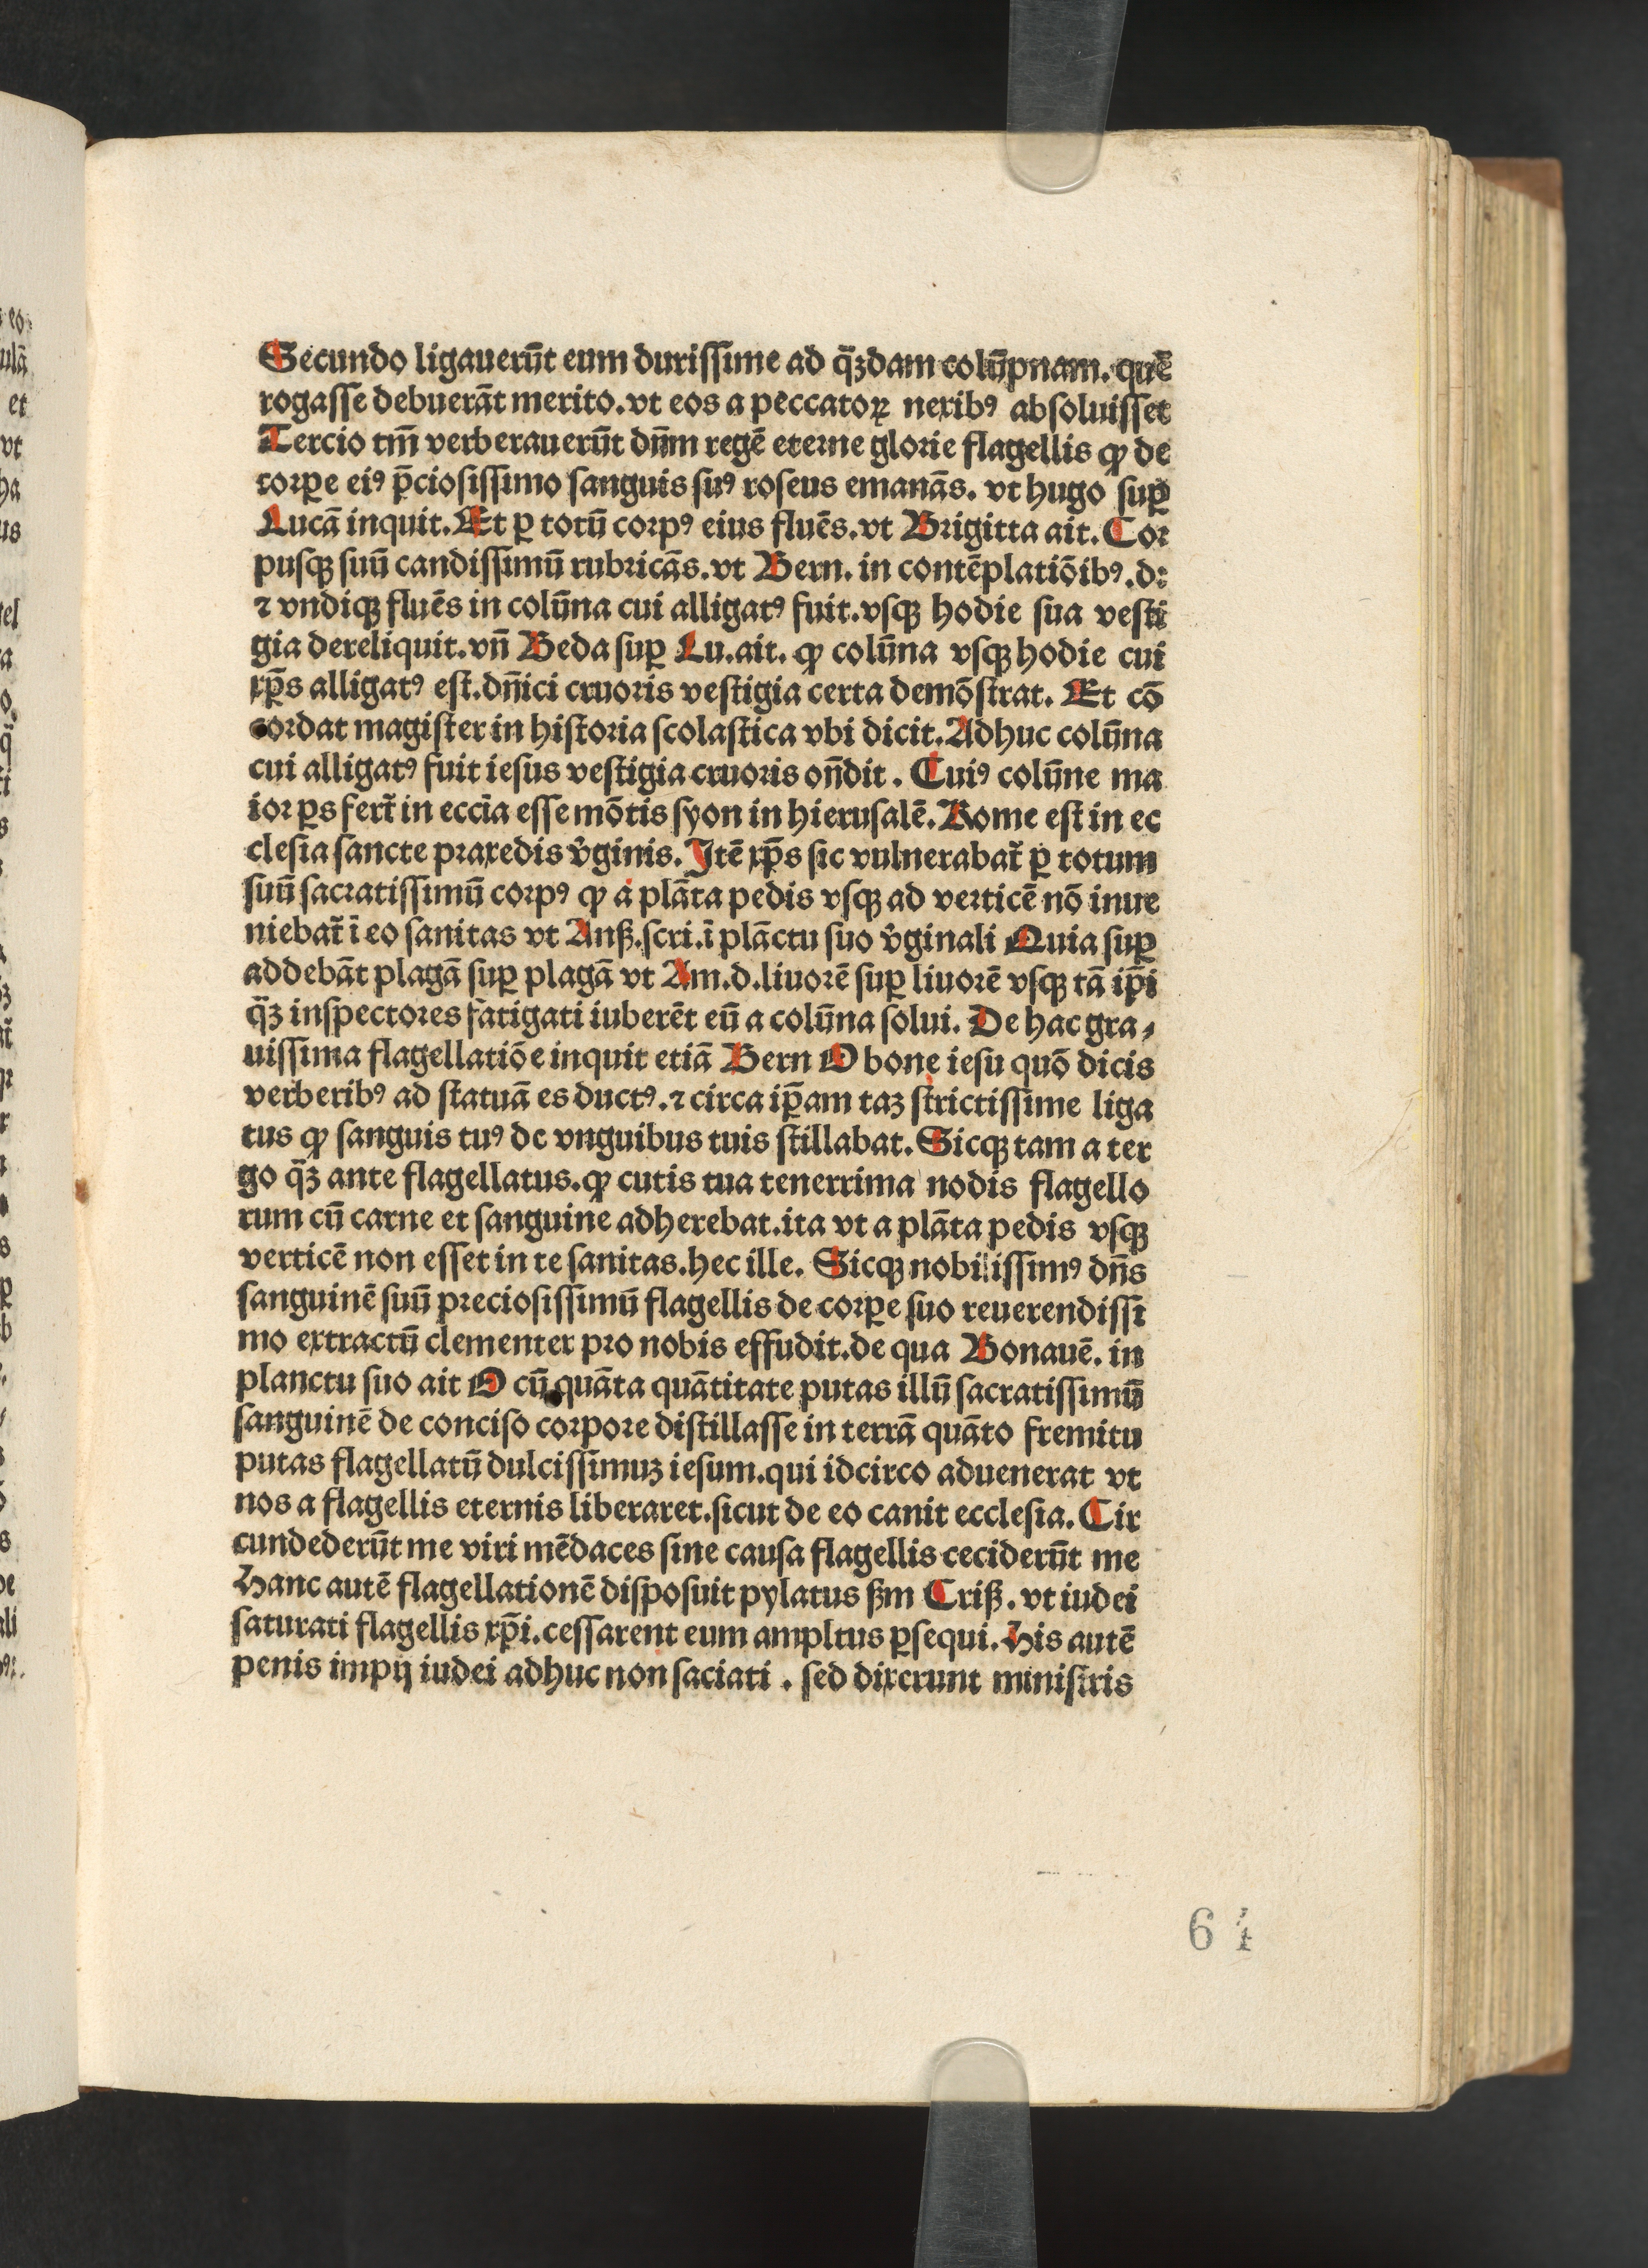 Secundo ligauerūt eum durissime ad q̄ꝫdam colūpnam. quē
rogasse debuerāt merito. vt eos a peccatoꝝ nexibꝰ absoluisset
Tercio tm̄ verberauerūt dn̄m regē eterne glorie flagellis ꝙ de
corꝑe eiꝰ p̄ciosissimo sanguis suꝰ roseus emanās. vt hugo suꝑ
Lucā inquit. Et ꝑ totū corpꝰ eius fluēs. vt Brigitta ait. Cor
pusqꝫ suū candissimū rubricās. vt Bern. in contēplatiōibꝰ. d:
⁊ vndiqꝫ fluēs in colūna cui alligatꝰ fuit. vsqꝫ hodie sua vesti
gia dereliquit. vn̄ Beda suꝑ Lu. ait. ꝙ colūna vsqꝫ hodie cui
xp̄s alligatꝰ est. dn̄ici cruoris vestigia certa demōstrat. Et cō
cordat magister in historia scolastica vbi dicit. Adhuc colūna
cui alligatꝰ fuit iesus vestigia cruoris on̄dit. Cuiꝰ colūne ma
ior ꝑs fert᷑ in eccīa esse mōtis syon in hierusalē. Rome est in ec
clesia sancte praxedis v̓ginis. Itē xp̄s sic vulnerabat᷑ ꝑ totum
suū sacratissimū corpꝰ ꝙ a plāta pedis vsqꝫ ad verticē nō inue
niebat᷑ ī eo sanitas vt Anß. scri. ī plāctu suo v̓ginali Quia suꝑ
addebāt plagā suꝑ plagā vt Am. d. liuorē suꝑ liuorē vsqꝫ tā ip̄i
q̄ꝫ inspectores fatigati iuberēt eū a colūna solui. De hac gra⸗
uissima flagellatiōe inquit etiā Bern O bone iesu quō dicis
verberibꝰ ad statuā es ductꝰ. ⁊ circa ip̄am taꝫ strictissime liga
tus ꝙ sanguis tuꝰ de vnguibus tuis stillabat. Sicqꝫ tam a ter
go q̄ꝫ ante flagellatus. ꝙ cutis tua tenerrima nodis flagello
rum cū carne et sanguine adherebat. ita vt a plāta pedis vsqꝫ
verticē non esset in te sanitas. hec ille. Sicqꝫ nobilissimꝰ dn̄s
sanguinē suū preciosissimū flagellis de corꝑe suo reuerendissi
mo extractū clementer pro nobis effudit. de qua Bonauē. in
planctu suo ait O cū quāta quātitate putas illū sacratissimū
sanguinē de conciso corpore distillasse in terrā quāto fremitu
putas flagellatū dulcissimuꝫ iesum. qui idcirco aduenerat vt
nos a flagellis eternis liberaret. sicut de eo canit ecclesia. Cir
cundederūt me viri mēdaces sine causa flagellis ceciderūt me
Hanc autē flagellationē disposuit pylatus ßm Criß. vt iudei
saturati flagellis xp̄i. cessarent eum ampltus ꝑsequi. His autē
penis impij iudei adhuc non saciati. sed dixerunt ministris
64